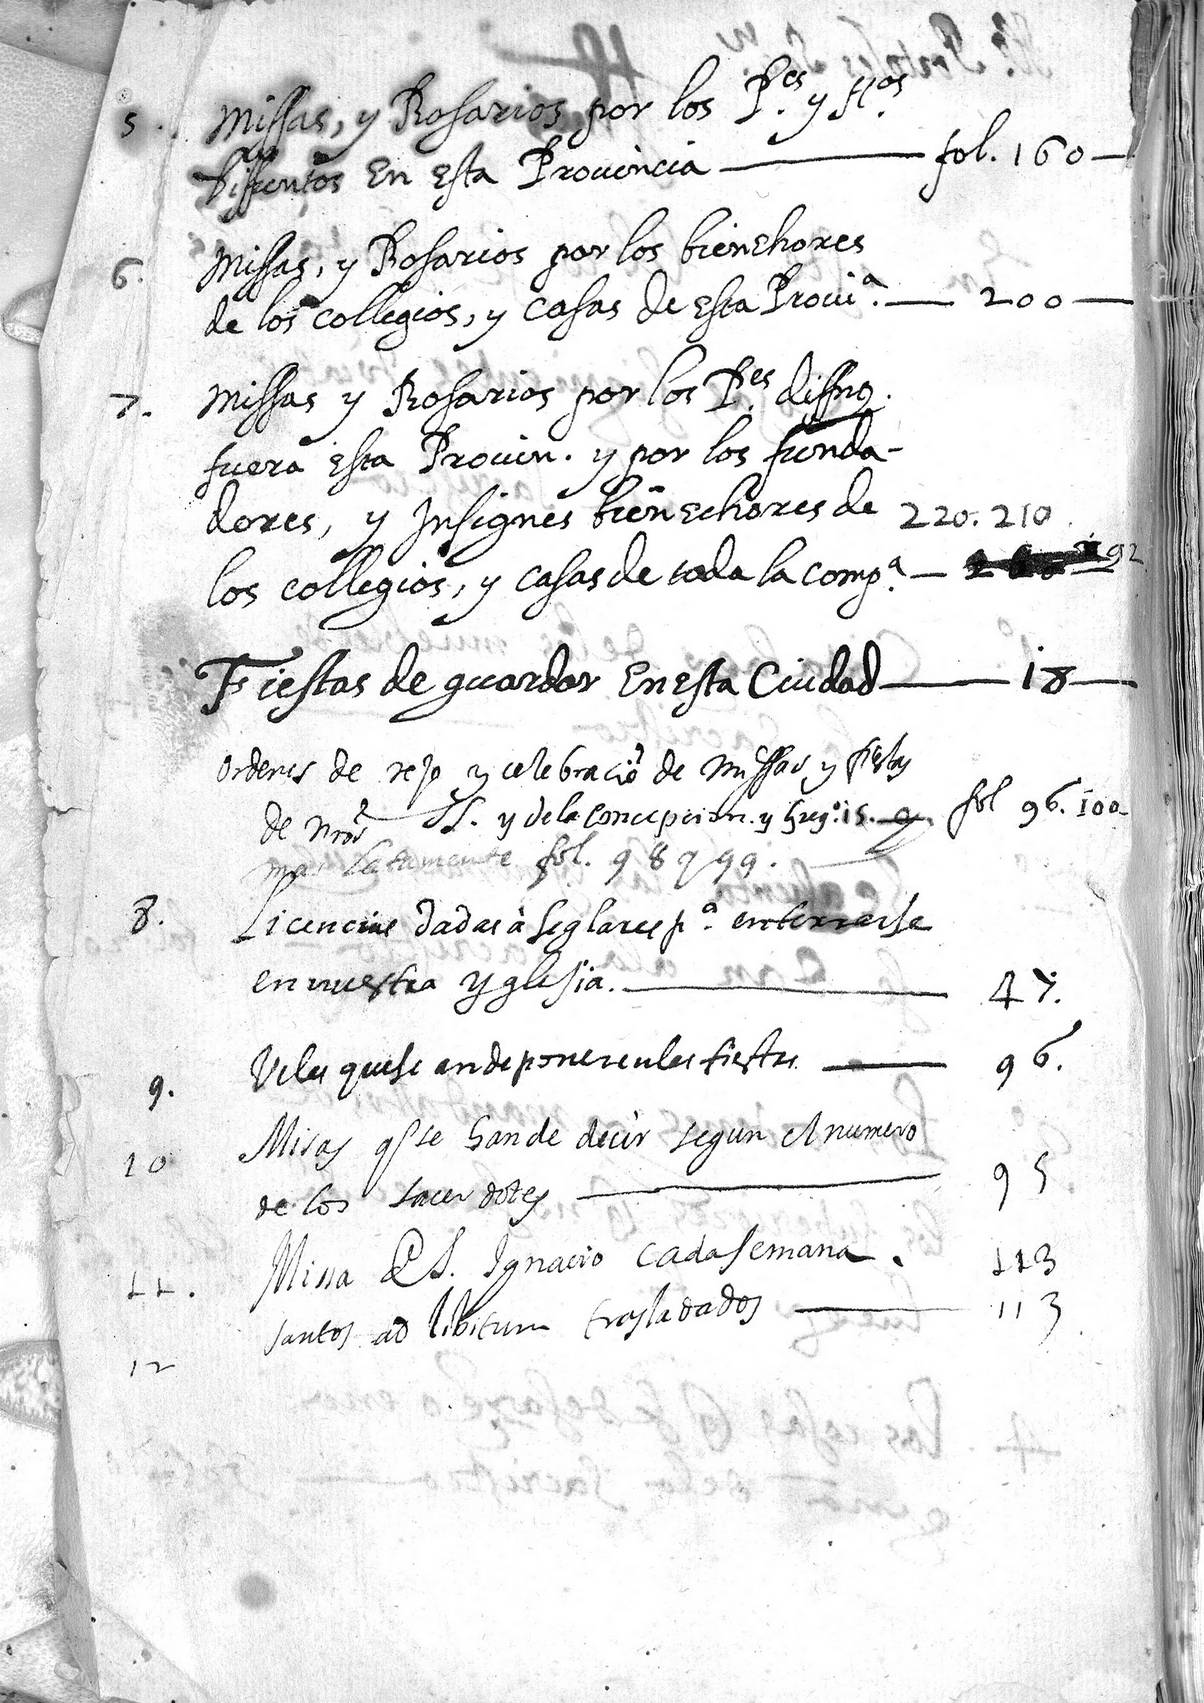 5. Missas, y Rosarios por los P.es y H.os
Diffuntos En Esta Prouincia —— fol. 160 —
6. Missas, y Rosarios por los bienEhores
de los collegios, y casas de Esta Proui.a — 200 —
7. Missas y Rosarios por los P.es diffno.
fuera Esta Prouin. y por los funda-
dores, y Insignes bienEchores de 220. 210.
los collegios, y casas de toda la comp.a — 192
Fiestas de guardar En esta Ciudad —— 18 —
ordenes de rezo y celebracio de Missas y fiestas
de nros SS. y de la Concepcion. y fol 96. 100
mas latamente fol. 98 y 99.
8. Licencias dadas à seglares p.a enterrarse
en nuestra yglesia. —— 47.
9. Velas que se an de poner en las fiestas —— 96.
10 Misas q se han de decir segun el numero
de los sacerdotes —— 95
11. Missa S. Ignacio cada semana. 113
12 santos ad libitum trasladados —— 113